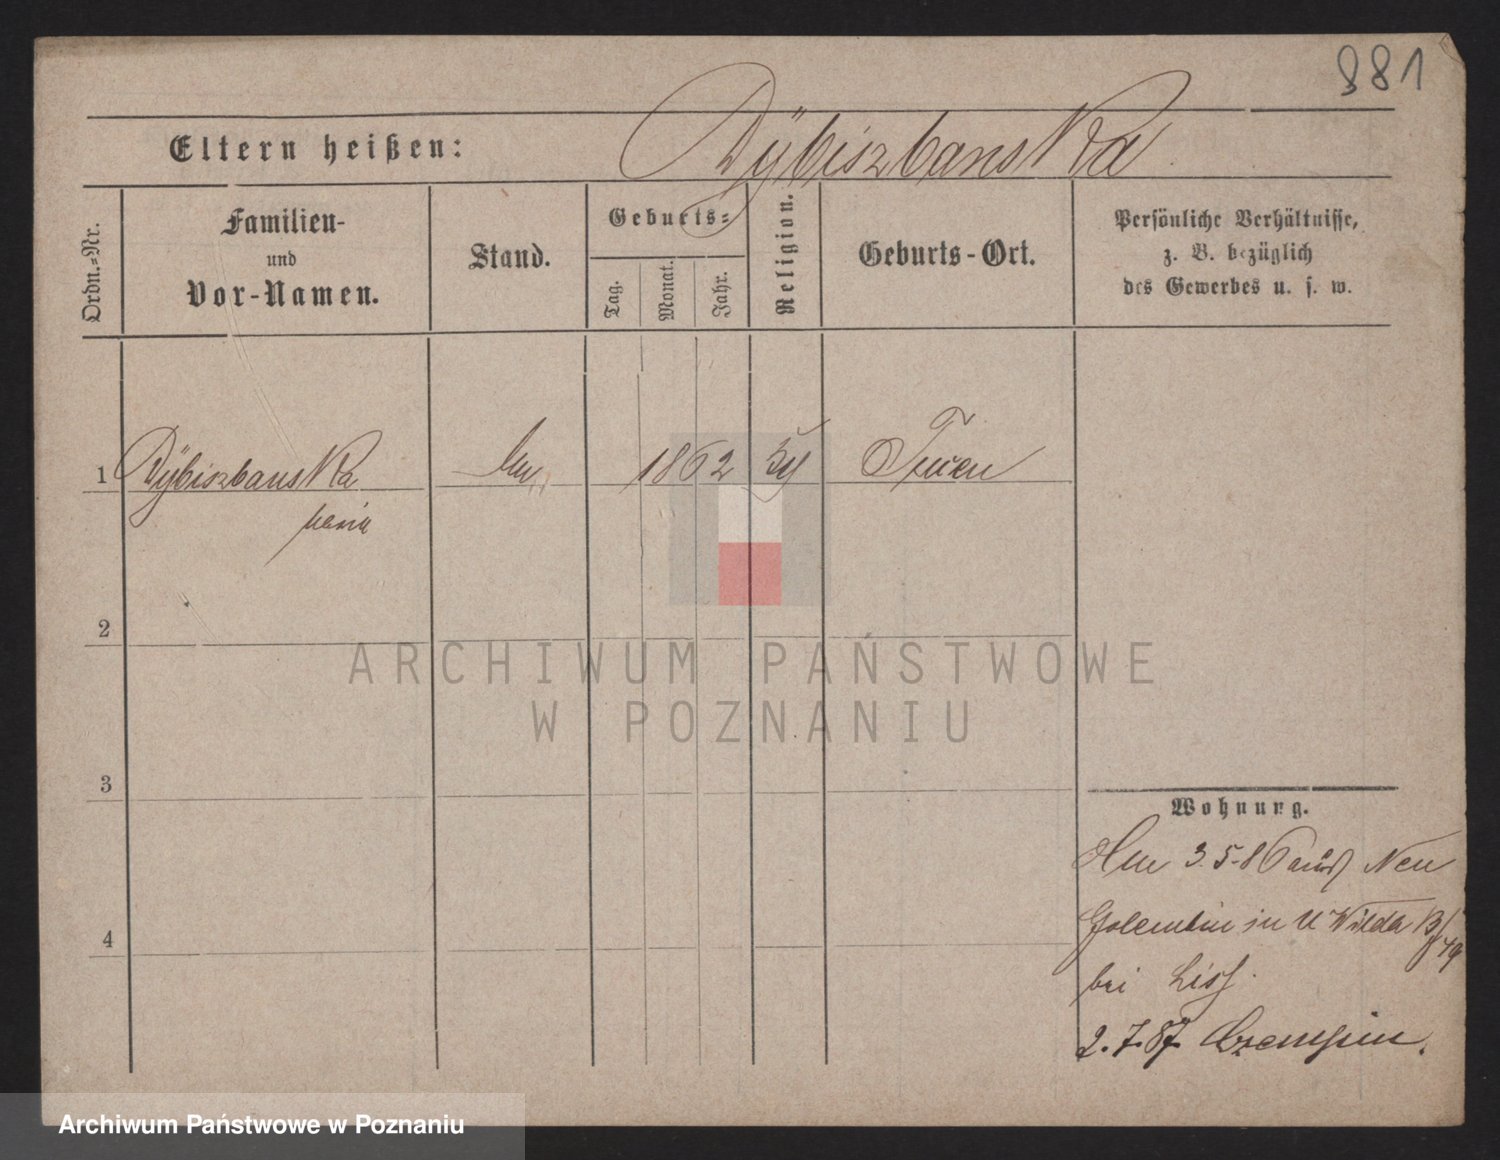 881
Eltern heißen: Dÿbiszbanska
Ordn.-Nr.
Familien-
und
Vor-Namen.
Stand.
Geburts-
Tag.
Monat.
Jahr.
Religion.
Geburts-Ort.
Persönliche Verhältnisse,
z. B. bezüglich
des Gewerbes u. s. w.
1 Dÿbiszbanska 1862
Maria
2
3
4
Wohnung.
3.5.86 Neu
Golembin in U Wilda 13/49
bei Liss.
2.7.87 Czempin.
ARCHIWUM PAŃSTWOWE
W POZNANIU
Archiwum Państwowe w Poznaniu